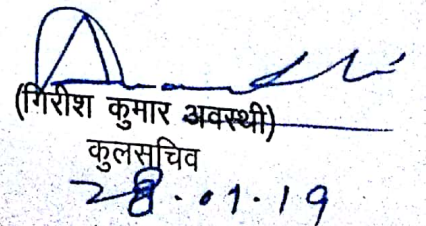 (गिरीश कुमार अवस्थी)
कुलसचिव
28.01.19